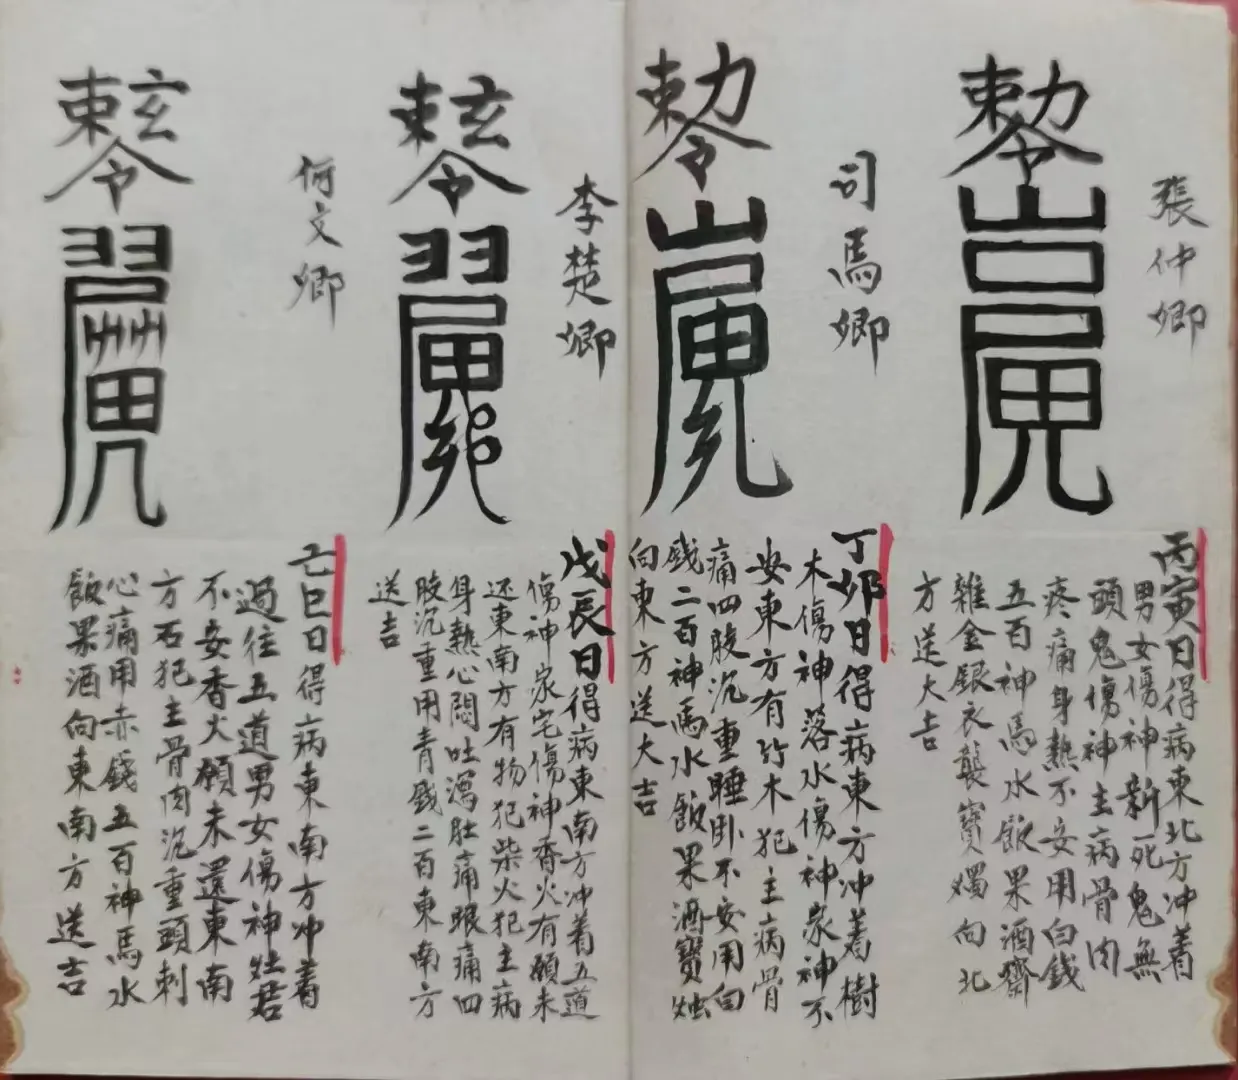 張仲卿
丙寅日得病東北方冲着
男女傷神新死鬼無
頭鬼傷神主病骨肉
疼痛身熱不安用白錢
五百神馬水飯果酒齋
雜金銀衣襲寶燭向北
方送大吉
司馬卿
丁卯日得病東方冲着樹
木傷神落水傷神家神不
安東方有竹木犯主病骨
痛四肢沉重睡卧不安用白
錢二百神馬水飯果酒寶燭
向東方送大吉
李楚卿
戊辰日得病東南方冲着五道
傷神家宅傷神香火有願未
还東南方有物犯柴火犯主病
身熱心悶吐瀉肚痛眼痛四
肢沉重用青錢二百東南方
送吉
何文卿
己巳日得病東南方冲着
過往五道男女傷神灶君
不安香火願未還東南
方石犯主骨肉沉重頭刺
心痛用赤錢五百神馬水
飯果酒向東南方送吉